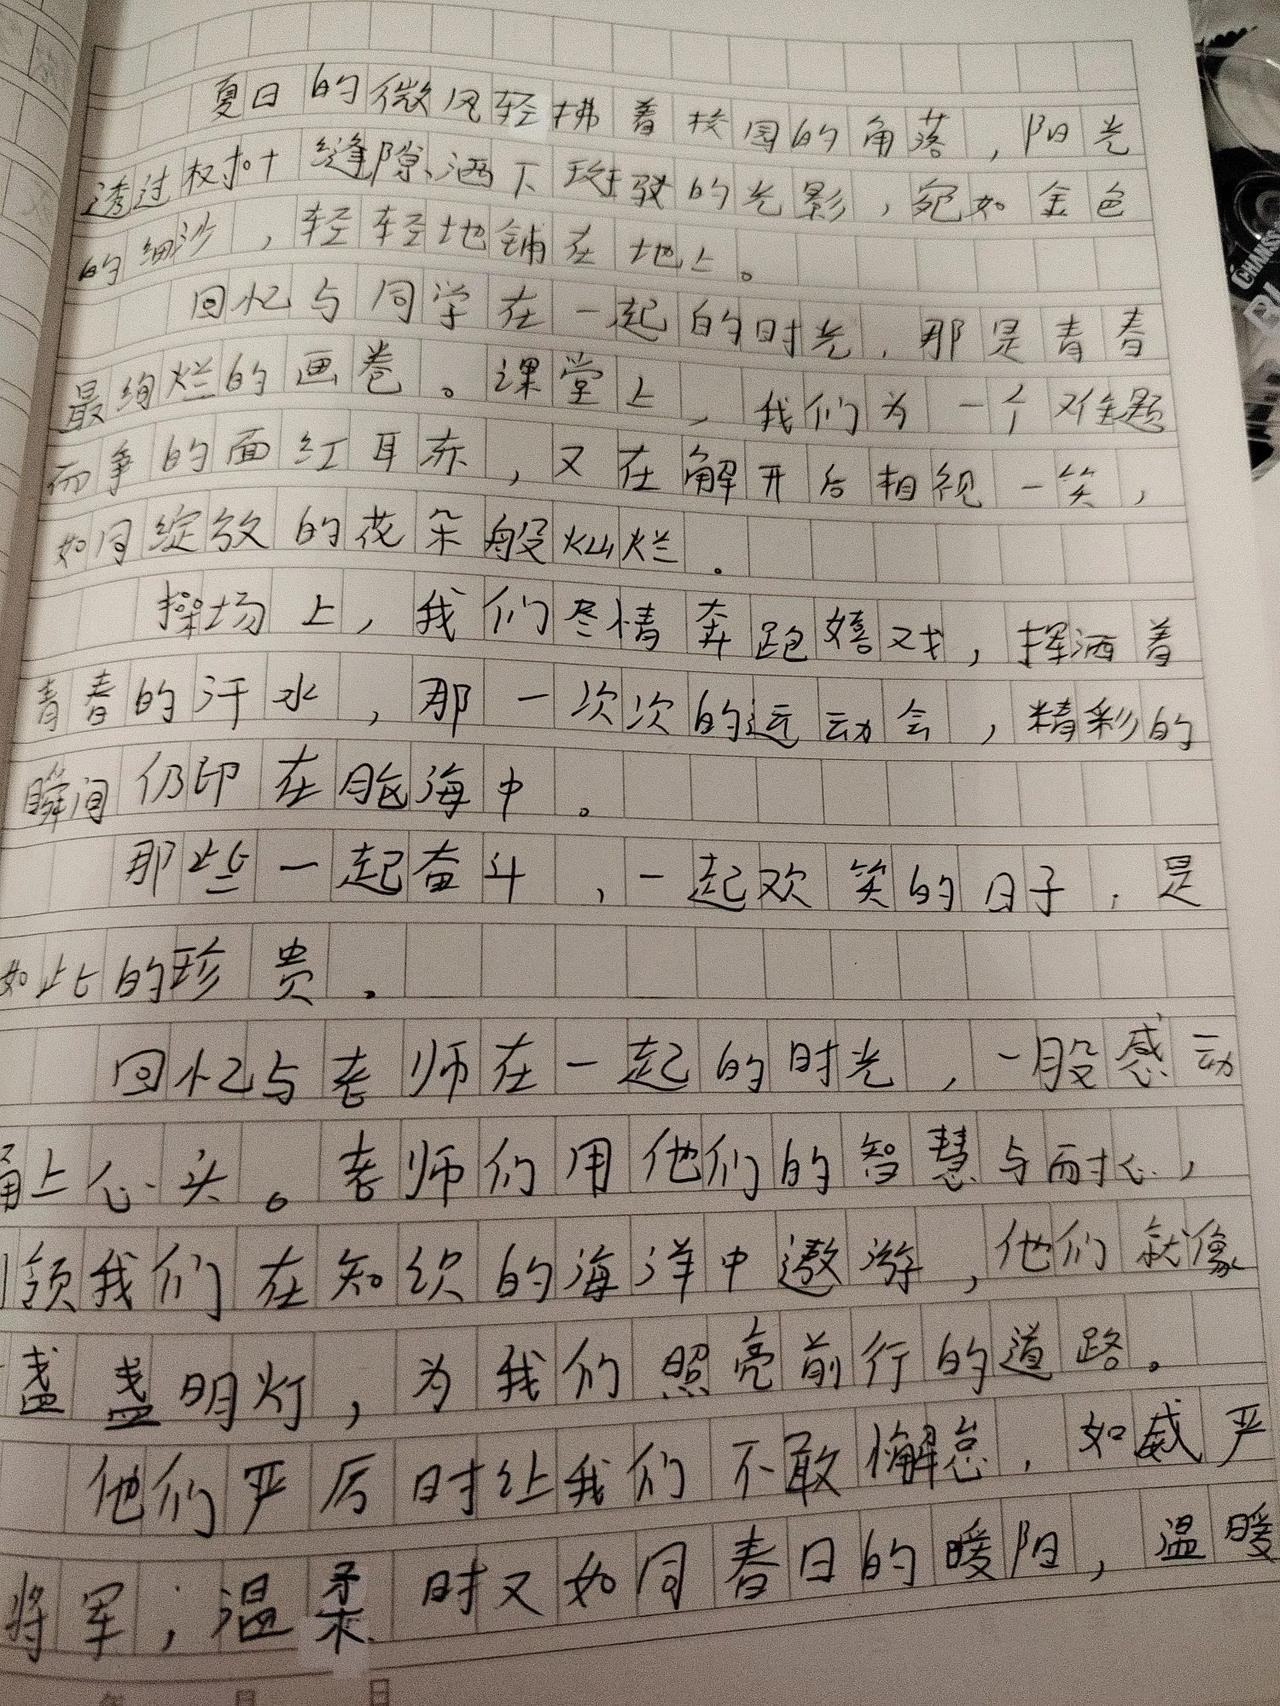 夏日的微风轻拂着校园的角落，阳光
透过树叶缝隙洒下斑驳的光影，宛如金色
的细沙，轻轻地铺在地上。
回忆与同学在一起的时光，那是青春
最绚烂的画卷。课堂上，我们为一个难题
而争的面红耳赤，又在解开后相视一笑，
如同绽放的花朵般灿烂.
操场上，我们尽情奔跑嬉戏，挥洒着
青春的汗水，那一次次的运动会，精彩的
瞬间仍印在脑海中。
那些一起奋斗，一起欢笑的日子，是
如此的珍贵.
回忆与老师在一起的时光，一股感动
涌上心头。老师们用他们的智慧与耐心，
引领我们在知识的海洋中遨游，他们就像
一盏盏明灯，为我们照亮前行的道路。
他们严厉时让我们不敢懈怠，如威严
将军，温柔时又如同春日的暖阳，温暖
年 月 日
CHANGS